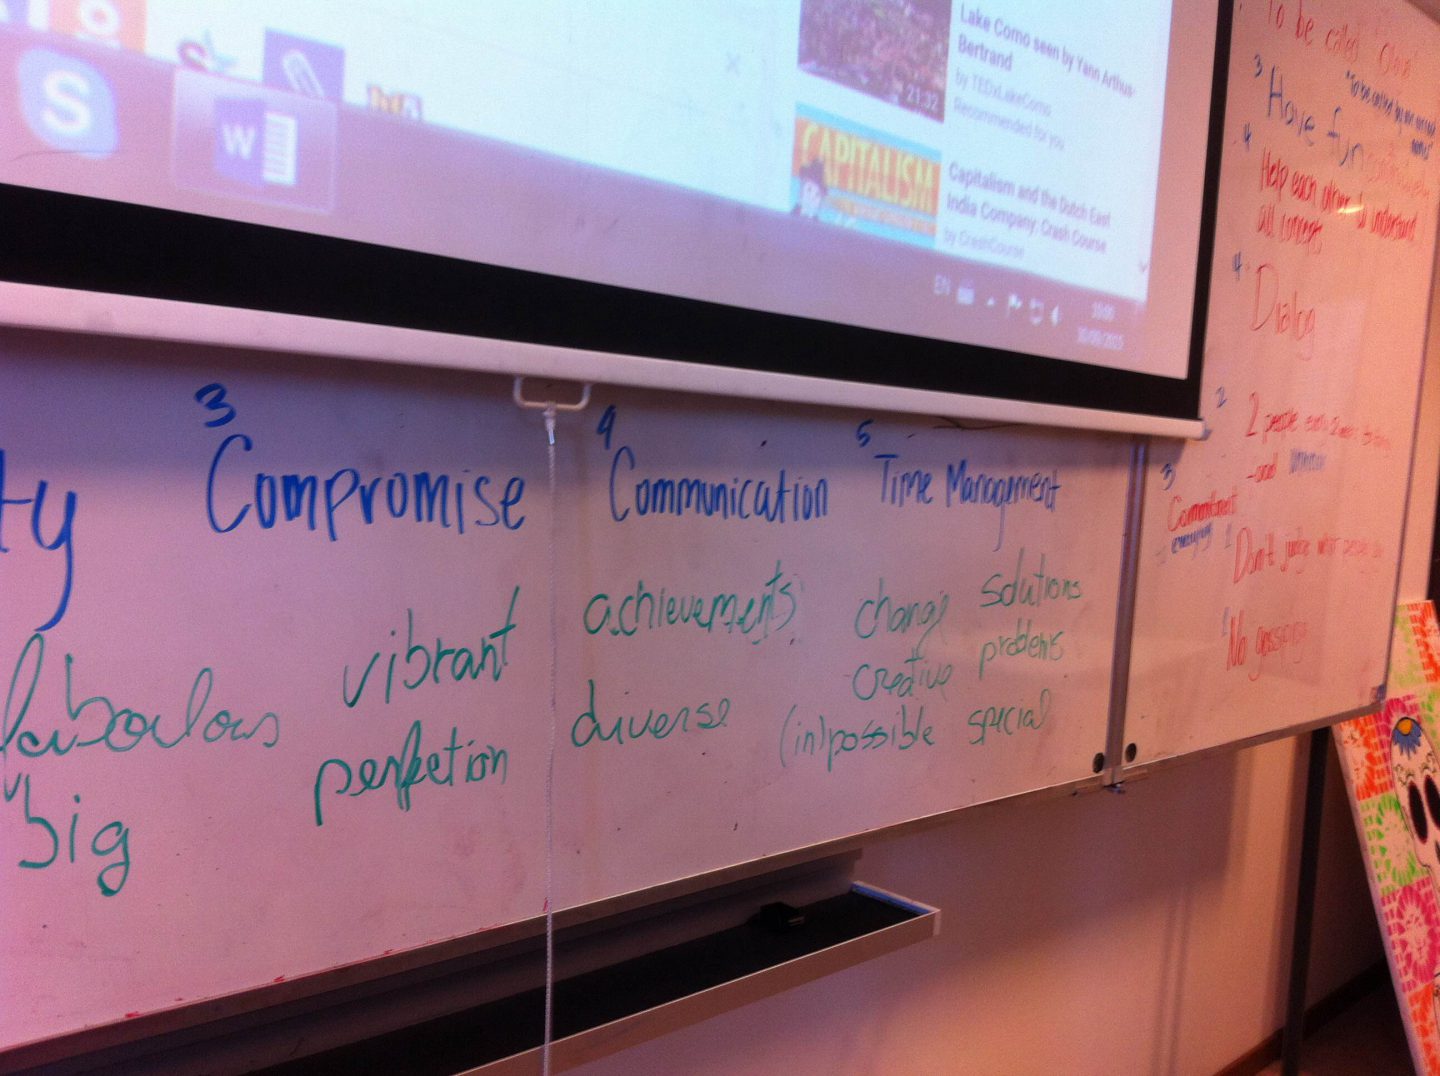 S
W
Lake Como seen by Yann Arthus-
Bertrand
by TEDxLakeComo
Recommended for you
21:32
CAPITALISM
Capitalism and the Dutch East
India Company: Crash Course
by CrashCourse
EN
30/09/2015
ty
3 Compromise
4 Communication
5 Time Management
faboulous
vibrant
achievements
change
solutions
big
perfection
diverse
creative
problems
(in)possible
special
To be called
3 Have fun
4 Help each other to understand
all concepts
4 Dialog
2 2 people
- and
3 Commitment
1 Don't judge
1 No gossiping